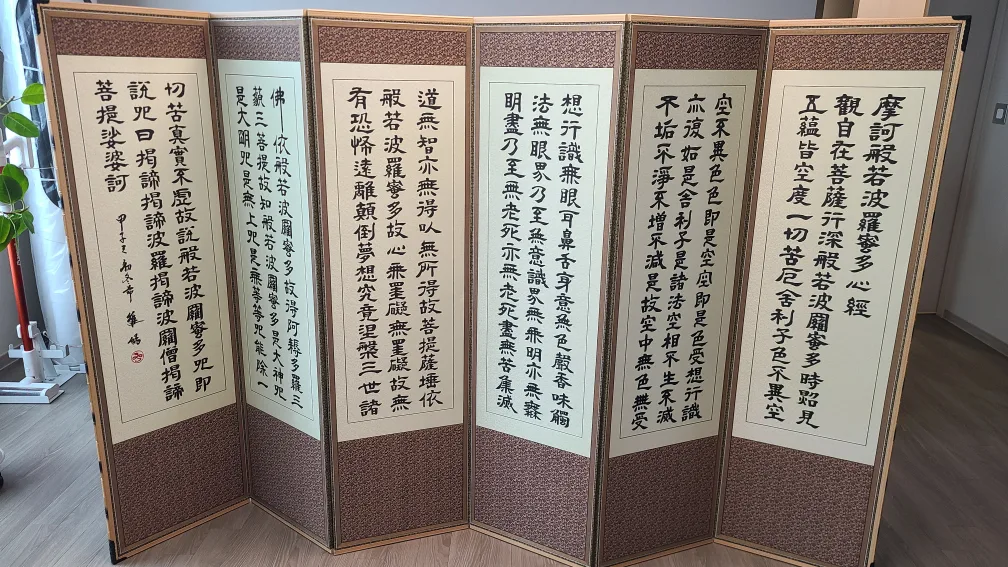 摩訶般若波羅蜜多心經
觀自在菩薩行深般若波羅蜜多時照見
五蘊皆空度一切苦厄舍利子色不異空
空不異色色即是空空即是色受想行識
亦復如是舍利子是諸法空相不生不滅
不垢不淨不增不減是故空中無色無受
想行識無眼耳鼻舌身意無色聲香味觸
法無眼界乃至無意識界無無明亦無無
明盡乃至無老死亦無老死盡無苦集滅
道無智亦無得以無所得故菩提薩埵依
般若波羅蜜多故心無罣礙無罣礙故無
有恐怖遠離顛倒夢想究竟涅槃三世諸
佛依般若波羅蜜多故得阿耨多羅三
藐三菩提故知般若波羅蜜多是大神咒
是大明咒是無上咒是無等等咒能除一
切苦真實不虛故說般若波羅蜜多咒即
說咒曰揭諦揭諦波羅揭諦波羅僧揭諦
菩提娑婆訶
甲子